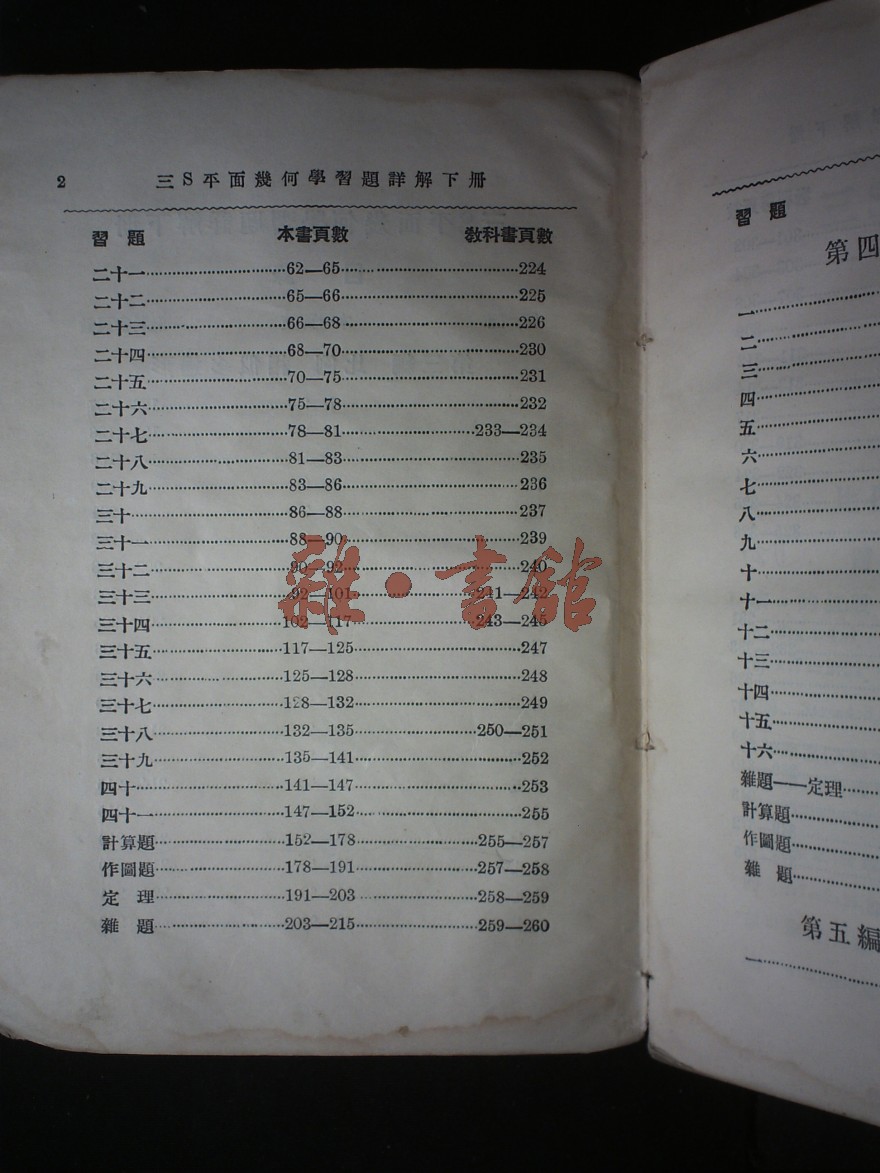 2 三S平面幾何學習題詳解下册
習題 本書頁數 教科書頁數
二十一 62—65 224
二十二 65—66 225
二十三 66—68 226
二十四 68—70 230
二十五 70—75 231
二十六 75—78 232
二十七 78—81 233—234
二十八 81—83 235
二十九 83—86 236
三十 86—88 237
三十一 88—90 239
三十二 90—92 240
三十三 92—101 241—242
三十四 102—117 243—245
三十五 117—125 247
三十六 125—128 248
三十七 128—132 249
三十八 132—135 250—251
三十九 135—141 252
四十 141—147 253
四十一 147—152 255
計算題 152—178 255—257
作圖題 178—191 257—258
定理 191—203 258—259
雜題 203—215 259—260
雜·書館
習題
第四
一
二
三
四
五
六
七
八
九
十
十一
十二
十三
十四
十五
十六
雜題——定理
計算題
作圖題
雜題
第五編
一